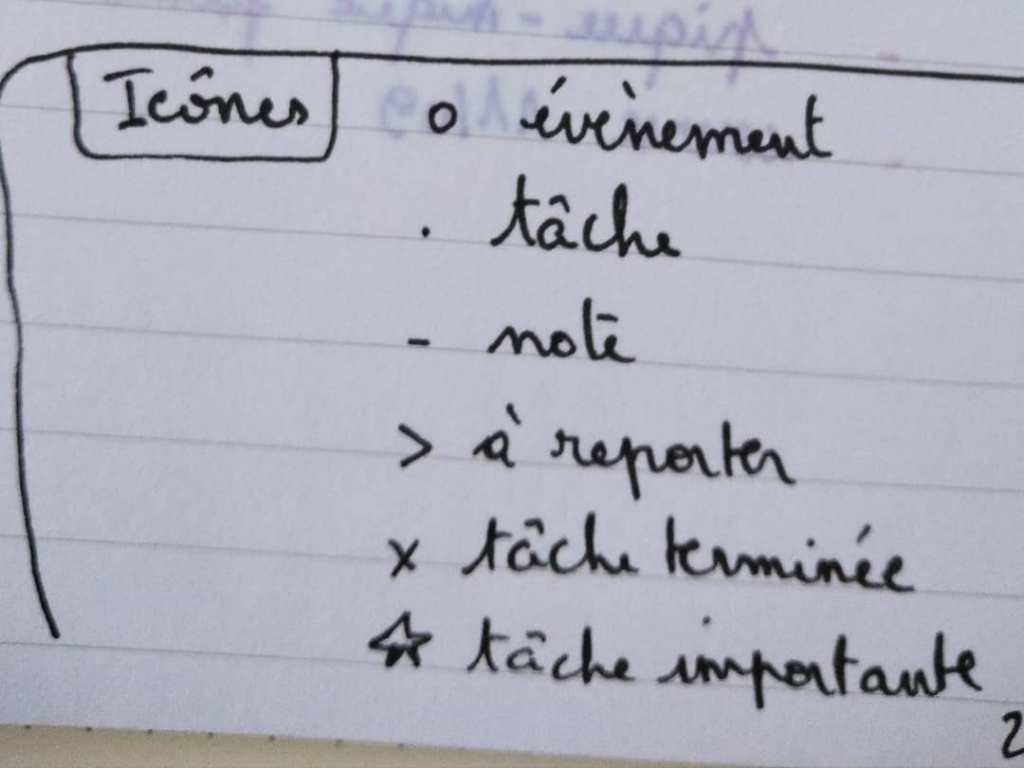 Icônes o évènement
. tâche
- note
> à reporter
x tâche terminée
☆ tâche importante
2